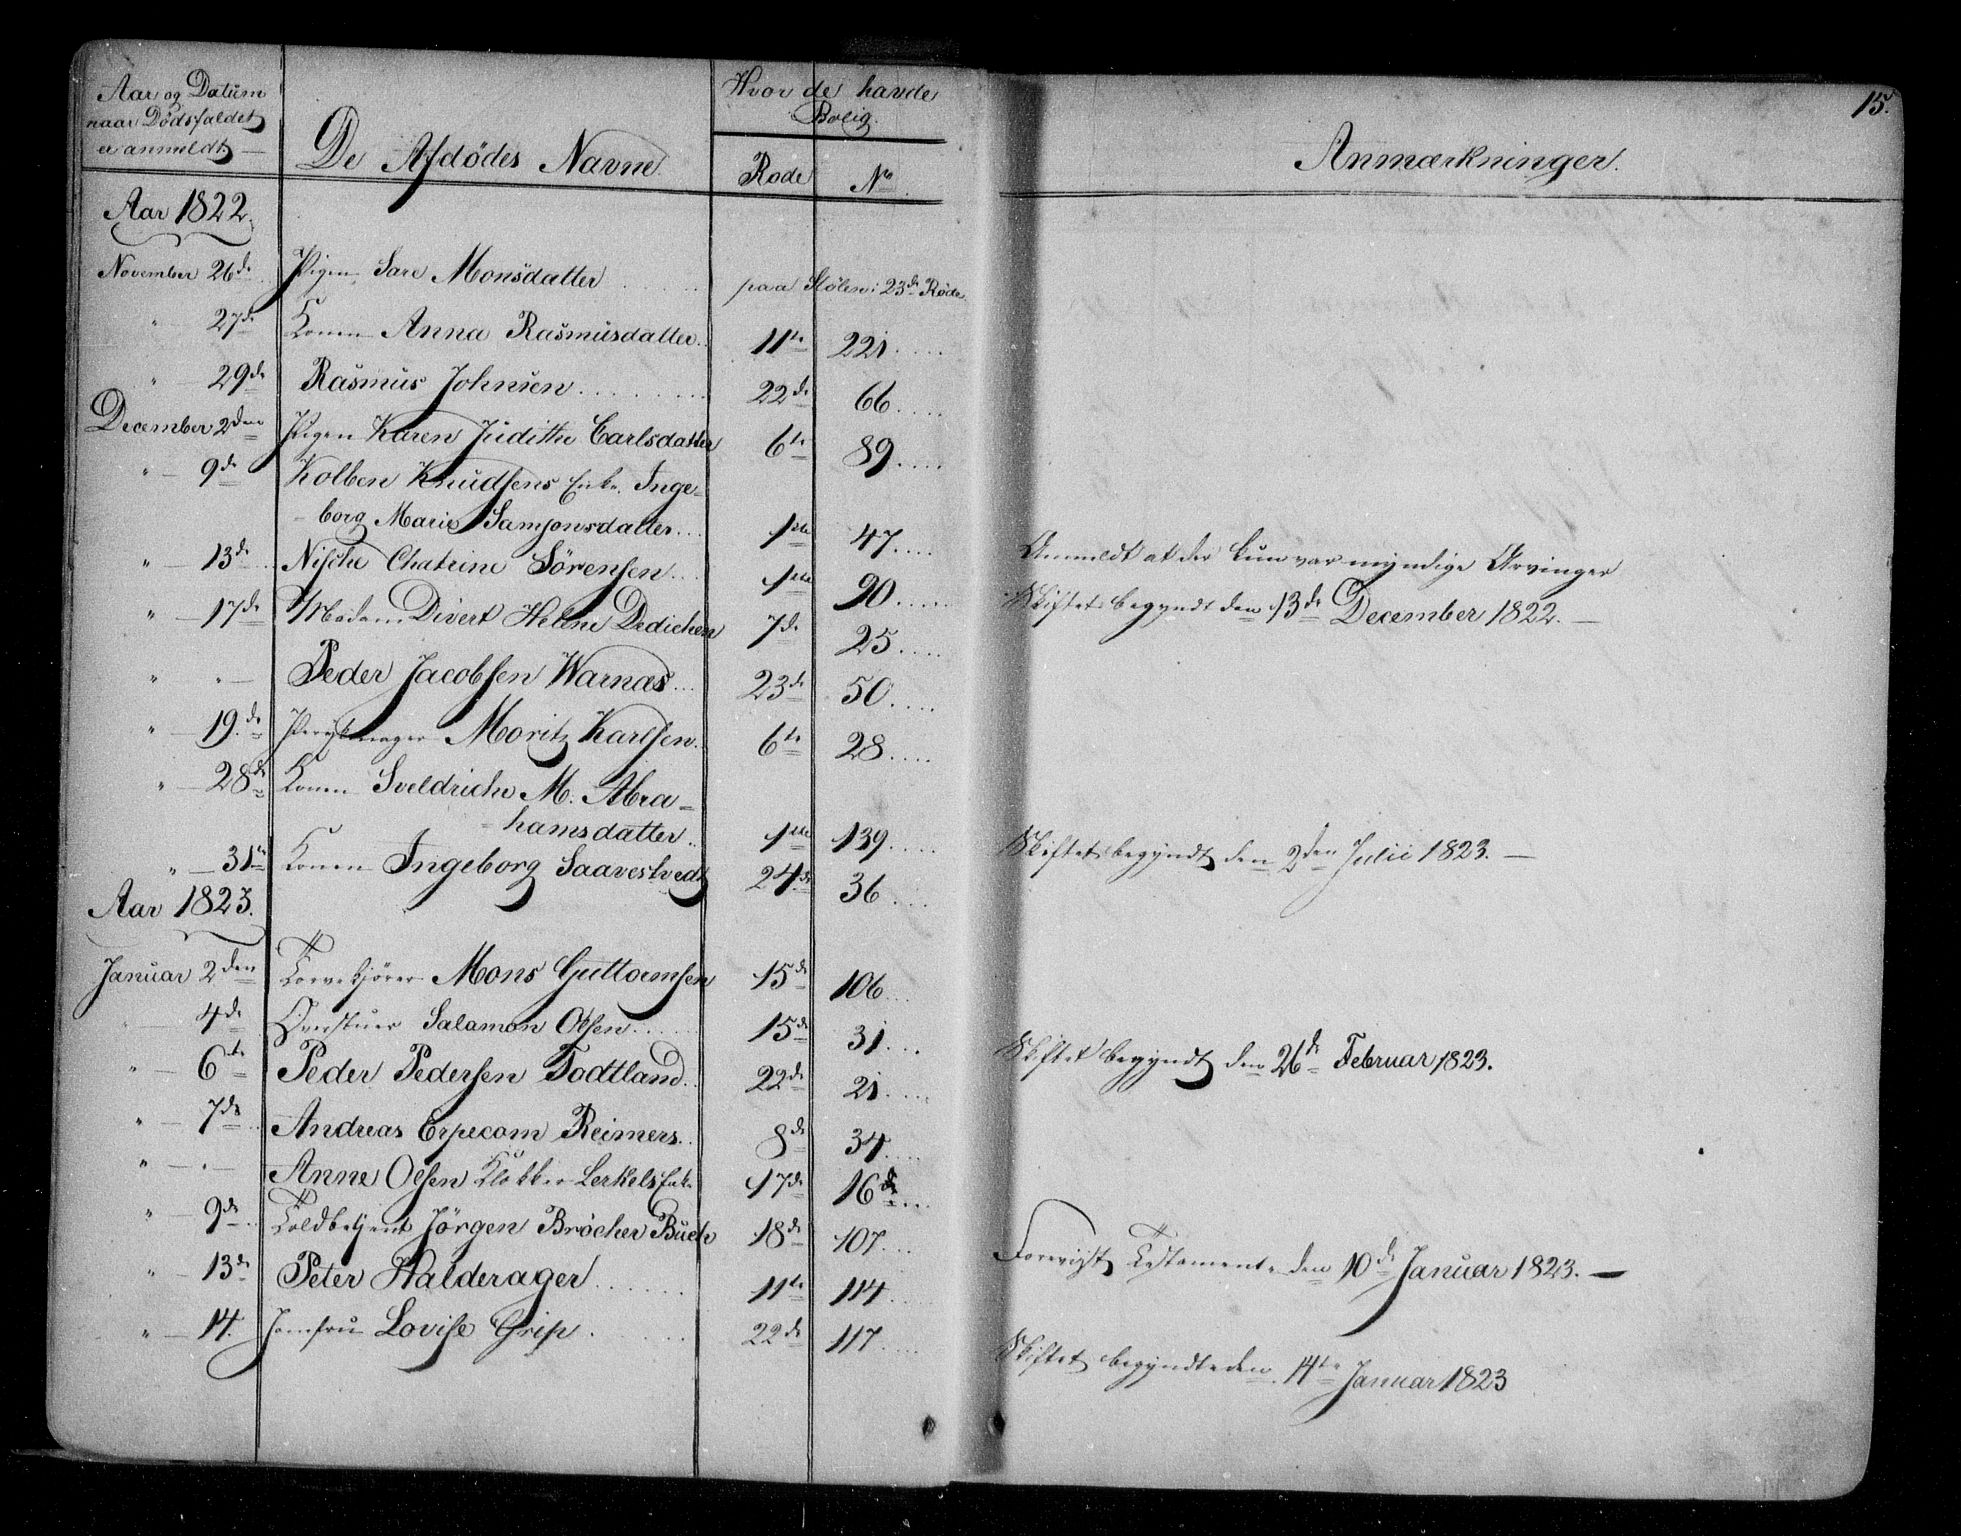 Aar og Datum
naar Dödsfaldet
er anmeldt.
De Afdödes Navne.
Hvor de havde
Bolig.
Rode No
15.
Anmærkninger.
Aar 1822.
November 26de Pigen Sare Monsdatter paa Stölen i 23de Rode
" 27de Konen Anna Rasmusdatter 11te 221
" 29de Rasmus Johnsen 22de 66
December 2den Pigen Karen Judithe Carlsdatter 6te 89
" 9de Kolben Knudsens Enke Inge-
borg Marie Samsonsdatter 1ste 47 Anmeldt at der kun var myndige Arvinger
" 13de Nische Chatrine Sörensen 1ste 90 Skiftet begyndt den 13de December 1822.
" 17de Madam Divert Helene Dedichen 7de 25
" " Peder Jacobsen Warnæs 23de 50
" 19de Moritz Karlsen 6te 28
" 28de Konen Sveldriche M. Abra-
hamsdatter 1ste 139 Skiftet begyndt den 2den Julii 1823.
" 31te Konen Ingeborg Saavestvedt 24de 36
Aar 1823.
Januar 2den Torvekjörer Mons Guttormsen 15de 106
" 4de Salamon Olsen 15de 31 Skiftet begyndt den 26de Februar 1823.
" 6te Peder Pedersen Todtland 22de 21
" 7de Andreas Erpecom Reimers 8de 34
" " Anne Olsen Klokker Lerkels Enke 17de 16de
" 9de Toldbetjent Jörgen Bröcher Buch 18de 107 Foreviist Testamente den 10de Januar 1823.
" 13de Peter Halderager 11te 114
" 14. Jomfru Lovise Grip 22de 117 Skiftet begyndte den 14te Januar 1823